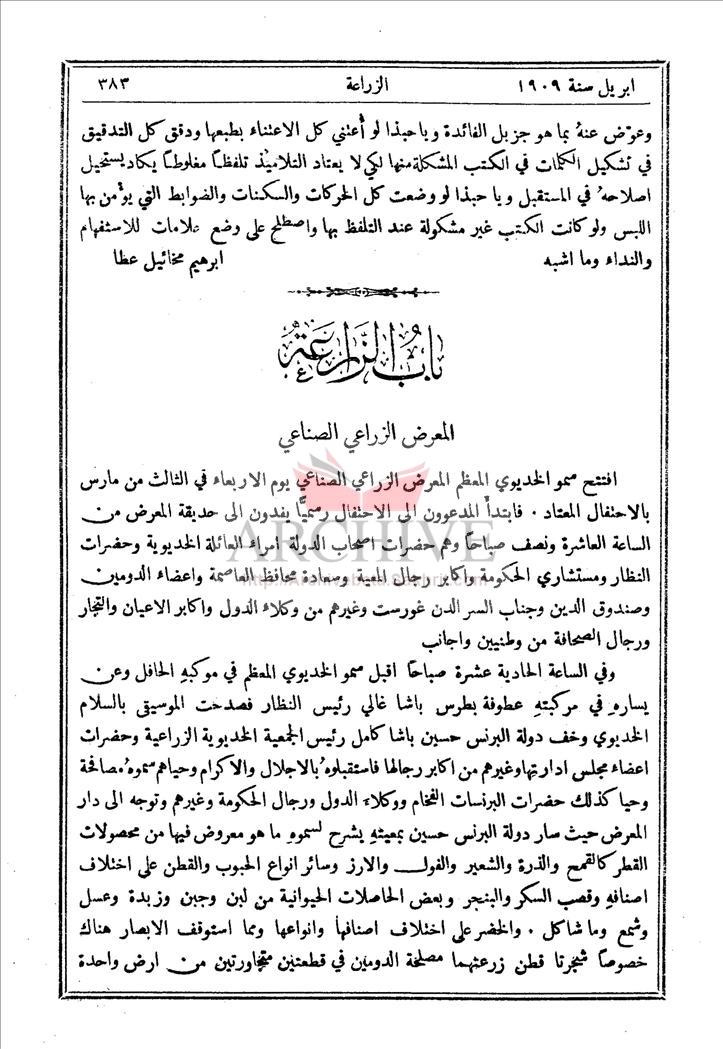 ابريل سنة ١٩٠٩ الزراعة ٣٨٣
وعوّض عنهُ بما هو جزيل الفائدة وياحبذا لو أُعتني كل الاعتناء بطبعها ودقق كل التدقيق
في تشكيل الكلمات في الكتب المشكلة منها لكي لا يعتاد التلاميذ تلفظاً مغلوطاً يكاد يستحيل
اصلاحهُ في المستقبل ويا حبذا لو وضعت كل الحركات والسكنات والضوابط التي يؤمن بها
اللبس ولو كانت الكتب غير مشكولة عند التلفظ بها واصطلح على وضع علامات للاستفهام
والنداء وما اشبه ابرهيم مخائيل عطا
بَابُ الزِّرَاعَةِ
المعرض الزراعي الصناعي
افتتح سمو الخديوي المعظم المعرض الزراعي الصناعي يوم الاربعاء في الثالث من مارس
بالاحتفال المعتاد . فابتدأ المدعوون الى الاحتفال رسميًّا يفدون الى حديقة المعرض من
الساعة العاشرة ونصف صباحاً وهم حضرات اصحاب الدولة امراء العائلة الخديوية وحضرات
النظار ومستشاري الحكومة واكابر رجال المعية وسعادة محافظ العاصمة واعضاء الدومين
وصندوق الدين وجناب السر الدن غورست وغيرهم من وكلاء الدول واكابر الاعيان والتجار
ورجال الصحافة من وطنيين واجانب
وفي الساعة الحادية عشرة صباحاً اقبل سمو الخديوي المعظم في موكبهِ الحافل وعن
يسارهِ في مركبتهِ عطوفة بطرس باشا غالي رئيس النظار فصدحت الموسيقى بالسلام
الخديوي وخف دولة البرنس حسين باشا كامل رئيس الجمعية الخديوية الزراعية وحضرات
اعضاء مجلس ادارتها وغيرهم من اكابر رجالها فاستقبلوهُ بالاجلال والاكرام وحياهم سموهُ مصافحة
وحيا كذلك حضرات البرنسات الفخام ووكلاء الدول ورجال الحكومة وغيرهم وتوجه الى دار
المعرض حيث سار دولة البرنس حسين بمعيتهِ يشرح لسموهِ ما هو معروض فيها من محصولات
القطر كالقمح والذرة والشعير والفول والارز وسائر انواع الحبوب والقطن على اختلاف
اصنافهِ وقصب السكر والبنجر وبعض الحاصلات الحيوانية من لبن وجبن وزبدة وعسل
وشمع وما شاكل . والخضر على اختلاف اصنافها وانواعها ومما استوقف الابصار هناك
خصوصاً شجرتا قطن زرعتهما مصلحة الدومين في قطعتين متجاورتين من ارض واحدة
ARCHIVE